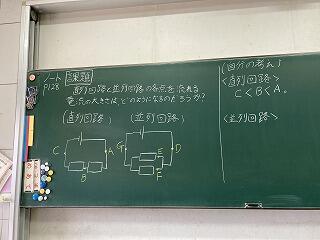 ノート
P128
課題
直列回路と並列回路の各点を流れる
電流の大きさは、どのようになるのだろうか?
(直列回路)
(並列回路)
C
A
B
G
E
D
F
(自分の考え)
<直列回路>
C<B<A。
<並列回路>